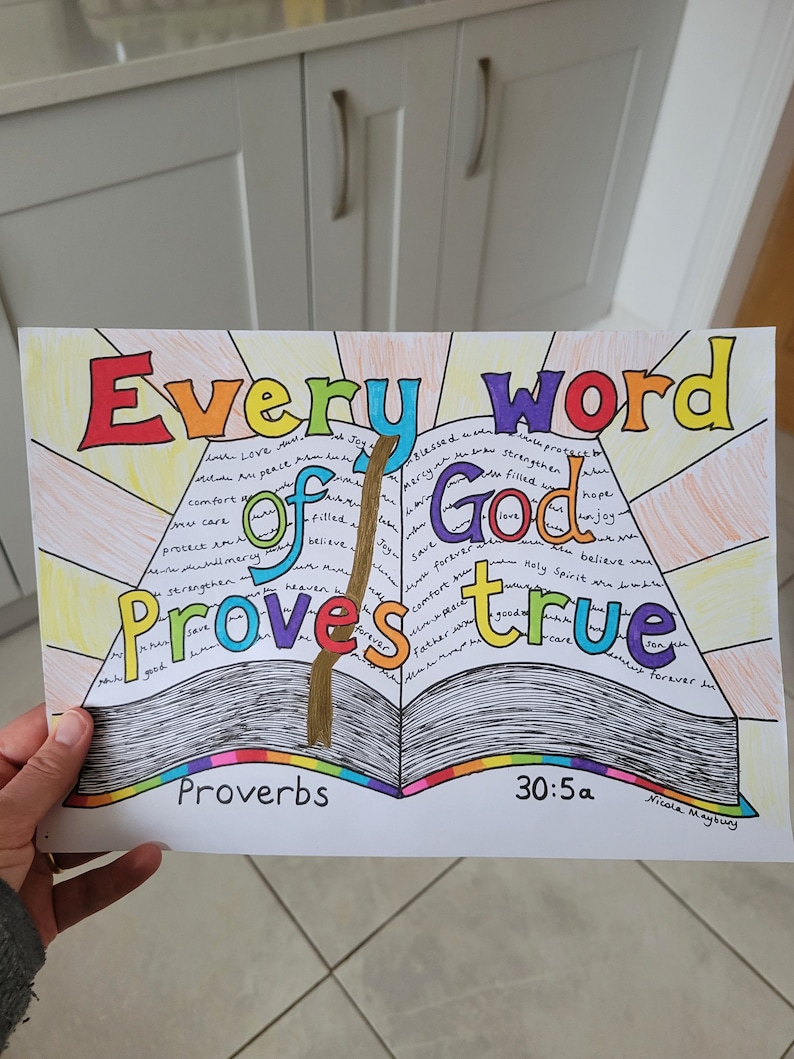 Every word
of God
Proves true
Love Joy
peace
comfort
care filled Joy
protect mercy believe
strengthen heaven
save forever
good
Blessed protect
mercy strengthen
filled hope
love joy
save forever believe
comfort Holy Spirit
peace good son
Father care forever
Proverbs 30:5a
Nicola Maybury